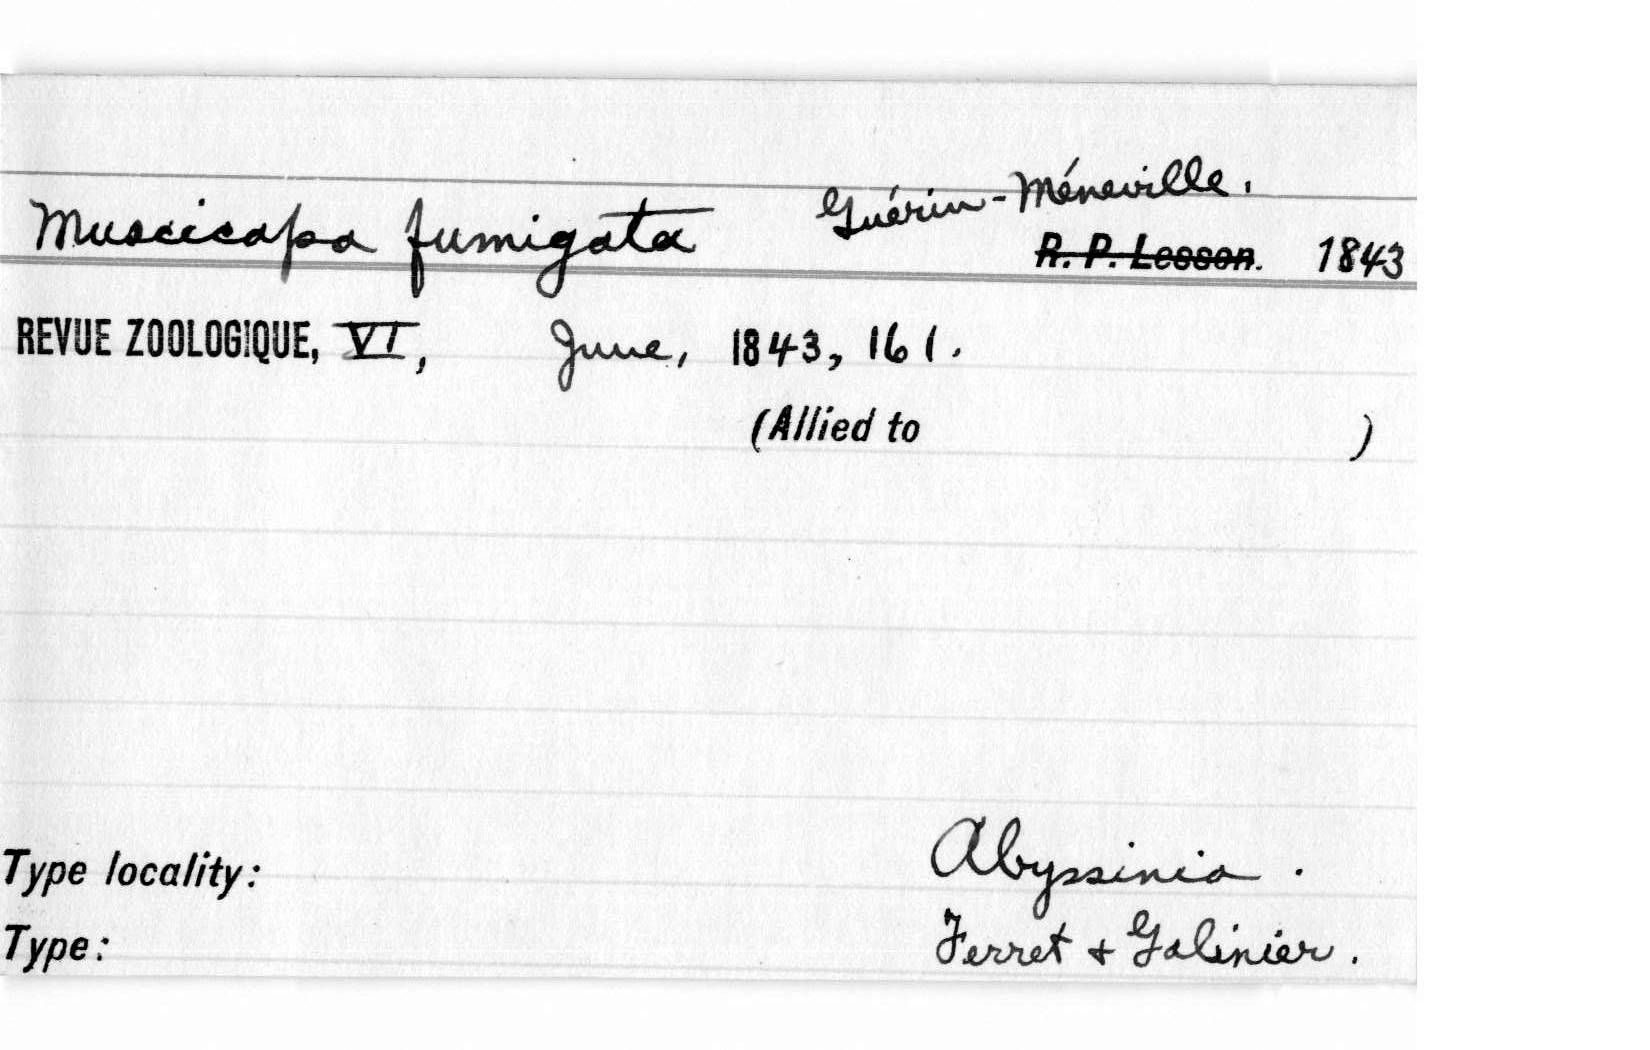 Guérin-Méneville.
Muscicapa fumigata R. P. Lesson. 1843
REVUE ZOOLOGIQUE, VI, June, 1843, 161.
(Allied to )
Type locality: Abyssinia.
Type: Ferret + Galinier.